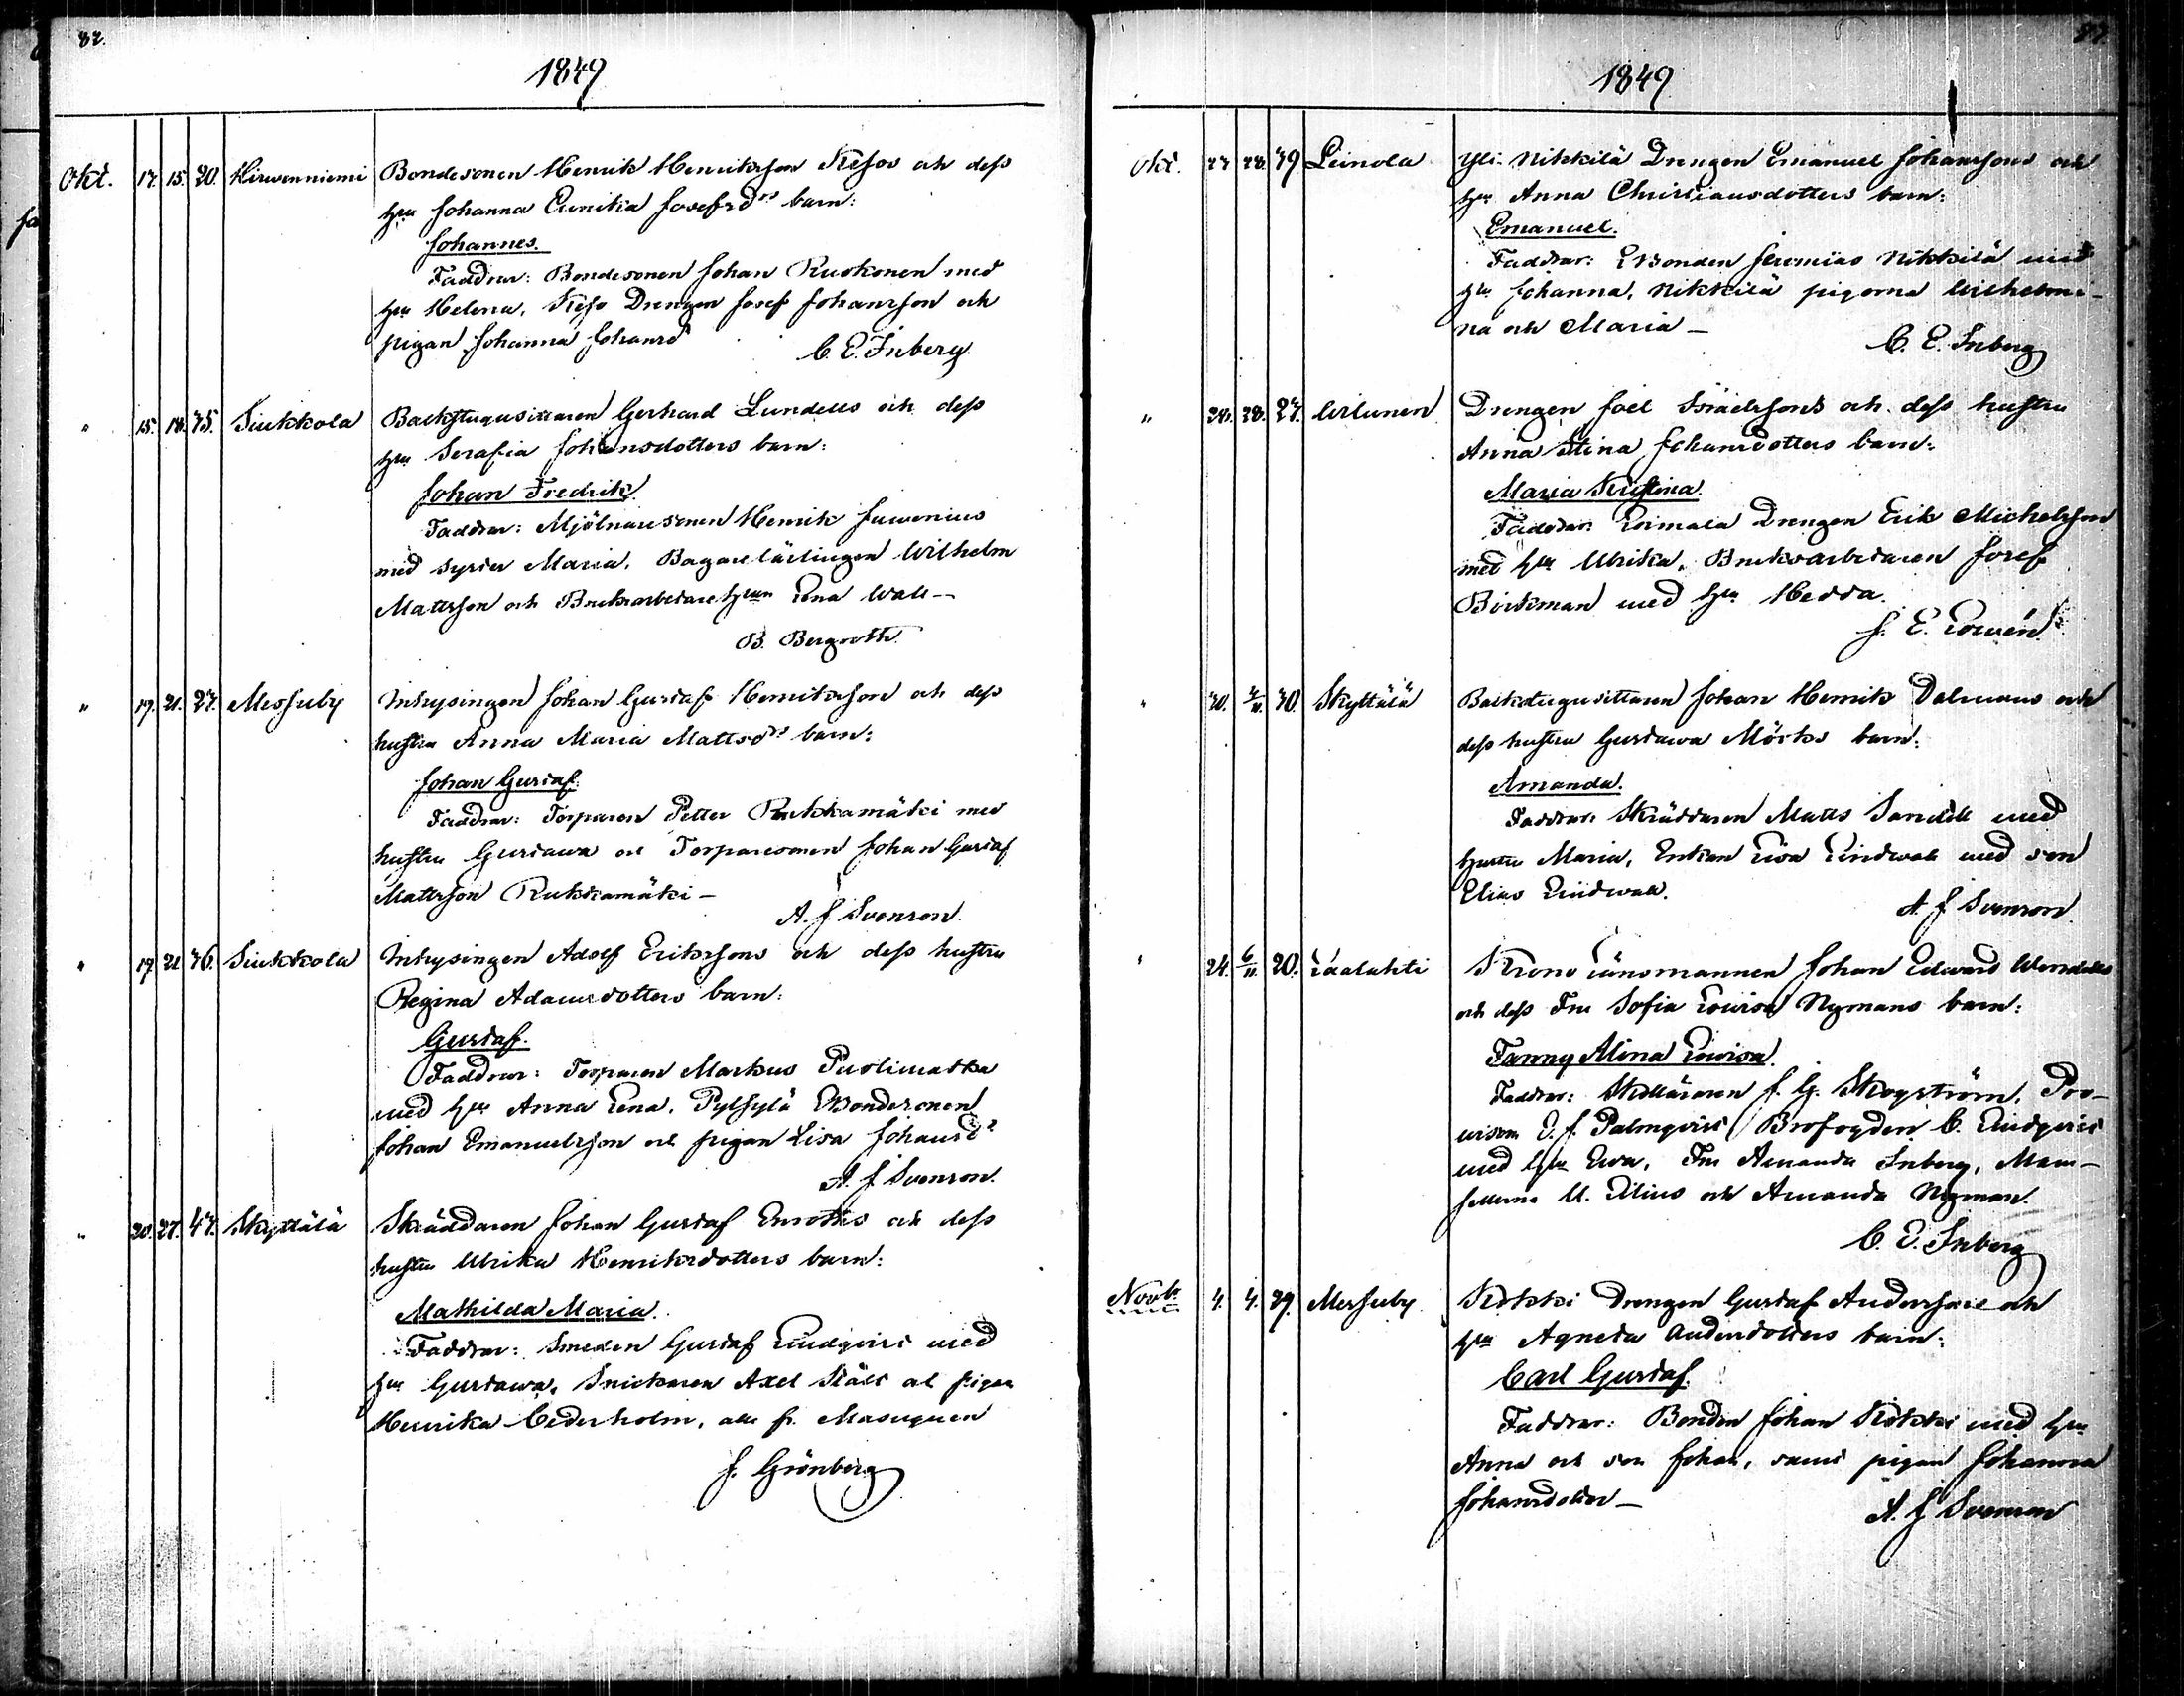 82.
1849
Okt. 17. 15. 20. Hirwenniemi Bondesonen Henrik Henriksson Kejos och dess
hru Johanna Eunika Josefsdrs barn:
Johannes.
Faddrar: Bondesonen Johan Ruokonen med
hru Helena, Kejo Drengen Josef Johansson och
pigan Johanna Johansdr
C. E. Inberg.
" 15. 18. 35. Siukkola Backstugusittaren Gerhard Lundells och dess
hru Serafia Johansdotters barn:
Johan Fredrik.
Faddrar: Mjölnaresonen Henrik Juwenius
med syster Maria, Bagarelärlingen Wilhelm
Mattsson och Bruksarbetare hrun Lena Wall –
B. Bergroth.
" 17. 21. 27. Messuby Inhysingen Johan Gustaf Henriksson och dess
hustru Anna Maria Mattsdrs barn:
Johan Gustaf.
Faddrar: Torparen Petter Rukkamäki med
hustru Gustawa och Torparesonen Johan Gustaf
Mattsson Rukkamäki –
A. J. Svenson.
" 17. 21. 36. Siukkola Inhysingen Adolf Erikssons och dess hustru
Regina Adamsdotters barn:
Gustaf.
Faddrar: Torparen Markus Puolimatka
med hru Anna Lena, Pylsylä Bondesonen
Johan Emanuelsson och pigan Lisa Johansdr
A. J. Svenson.
" 20. 27. 47. Skyttälä Skräddaren Johan Gustaf Enroths och dess
hustru Ulrika Henriksdotters barn:
Mathilda Maria.
Faddrar: Smeden Gustaf Lindqvist med
hru Gustawa, Snickaren Axel Ståls och pigan
Henrika Cederholm, alla fr. Masugnen
J. Grönberg
1849
Okt. 27. 28. 39 Leinola Yli-Nikkilä Drengen Emanuel Johanssons och
hru Anna Christiansdotters barn:
Emanuel.
Faddrar: Bonden Jeremias Nikkilä med
hru Johanna, Nikkilä pigorna Wilhelmi-
na och Maria –
C. E. Inberg
" 24. 28. 27. Drengen Joel Israelssons och dess hustru
Anna Stina Johansdotters barn:
Maria Kristina.
Faddrar: Drengen Erik Michelsson
med hru Ulrika, Bruksarbetaren Josef
Björkman med hru Hedda.
" 30. 4/11. 30. Skyttälä Backstugusittaren Johan Henrik Dalmans och
dess hustru Gustawa Mörks barn:
Amanda.
Faddrar: Skräddaren Matts Sandell med
hustru Maria, Enkan Lisa Lindwall med son
Elias Lindwall.
A. J. Svenson.
" 24. 6/11. 20. Laalahti Krono Länsmannen Johan Edward
och dess Fru Sofia Lowisa Nymans barn:
Fanny Alina Lowisa.
Faddrar: J. G. Skogström, Pro-
visorn Palmqvist, Brofogden C. Lindqvist
med hru Ewa, Fru Amanda Inberg, Mam-
sellerna U. Lilius och Amanda Nyman.
C. E. Inberg
Novbr 4. 4. 29. Messuby Kokki Drengen Gustaf Anderssons och
hru Agneta Andersdotters barn:
Carl Gustaf.
Faddrar: Bonden Johan Kokki med hru
Anna och son Johan, samt pigan Johanna
Johansdotter –
A. J. Svenson